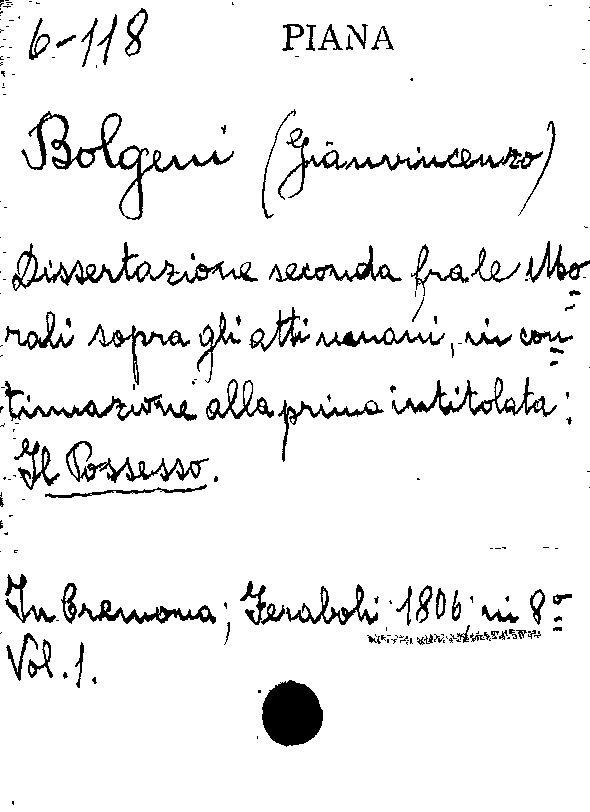 6-118 PIANA
Bolgeni (Gianvincenzo)
Dissertazione seconda fra le Mo=
rali sopra gli atti umani, in con=
tinuazione alla prima intitolata:
Il Possesso.
In Cremona; Feraboli 1806; in 8º=
Vol. 1.